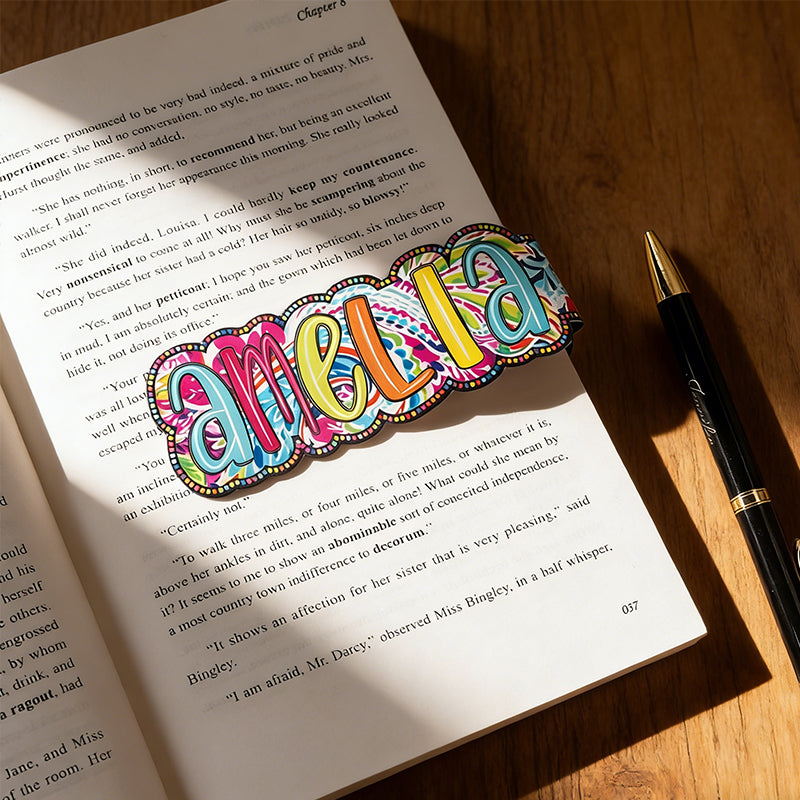 Chapter 8
nners were pronounced to be very bad indeed, a mixture of pride and
mpertinence; she had no conversation, no style, no taste, no beauty. Mrs.
Hurst thought the same, and added,
"She has nothing, in short, to recommend her, but being an excellent
walker. I shall never forget her appearance this morning. She really looked
almost wild."
"She did indeed, Louisa. I could hardly keep my countenance.
Very nonsensical to come at all! Why must she be scampering about the
country because her sister had a cold? Her hair so untidy, so blowsy!"
"Yes, and her petticoat; I hope you saw her petticoat, six inches deep
in mud, I am absolutely certain; and the gown which had been let down to
hide it, not doing its office."
"Your
was all lo
well when
escaped m
"You
am incline
an exhibition
"Certainly not."
"To walk three miles, or four miles, or five miles, or whatever it is,
above her ankles in dirt, and alone, quite alone! What could she mean by
it? It seems to me to show an abominable sort of conceited independence,
a most country town indifference to decorum."
"It shows an affection for her sister that is very pleasing," said
Bingley.
"I am afraid, Mr. Darcy," observed Miss Bingley, in a half whisper,
037
amelia
ould
nd his
herself
e others.
engrossed
, by whom
t, drink, and
a ragout, had
Jane, and Miss
of the room. Her